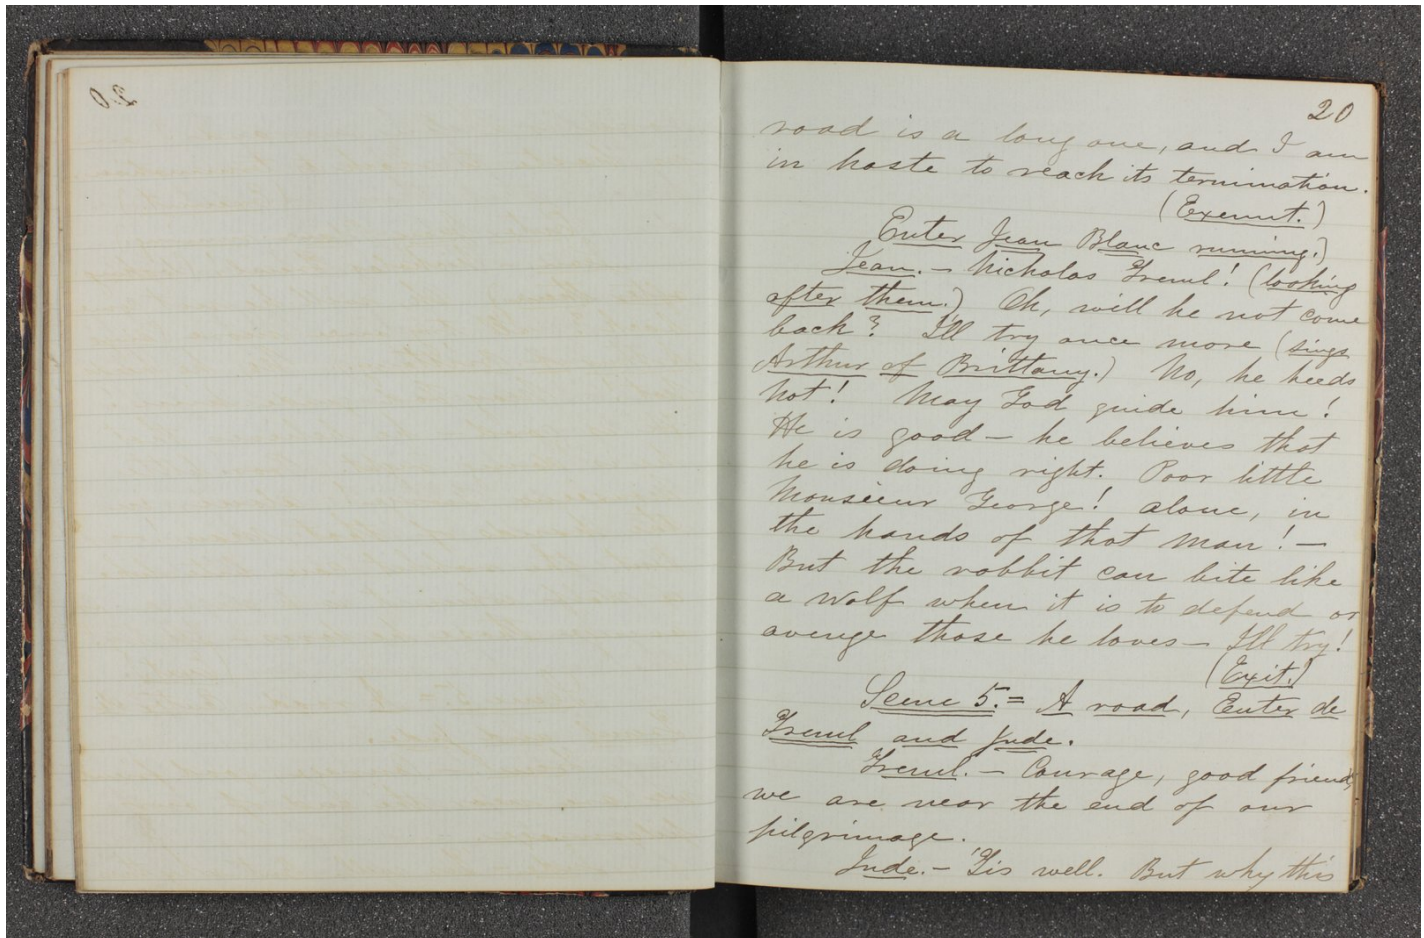 20
road is a long one, and I am
in haste to reach its termination.
(Exeunt.)
Enter Jean Blanc running.)
Jean. — Nicholas Treml! (looking
after them.) Oh, will he not come
back? I'll try once more (sings
Arthur of Brittany.) No, he heeds
not! May God guide him!
He is good — he believes that
he is doing right. Poor little
Monsieur George! alone, in
the hands of that man! —
But the rabbit can bite like
a wolf when it is to defend or
avenge those he loves — I'll try!
(Exit.)
Scene 5. = A road, Enter de
Treml and Jude.
Treml. — Courage, good friend,
we are near the end of our
pilgrimage.
Jude. — 'Tis well. But why this